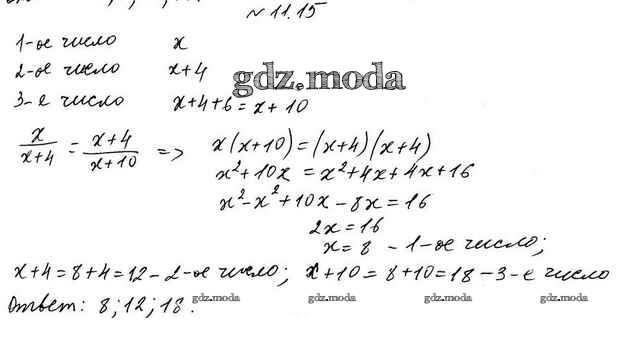 № 11.15
1-ое число x
2-ое число x+4
3-е число x+4+6=x+10
gdz.moda
x/(x+4) = (x+4)/(x+10) => x(x+10)=(x+4)(x+4)
x²+10x = x²+4x+4x+16
x²-x²+10x-8x=16
2x=16
x=8 - 1-ое число;
x+4=8+4=12-2-ое число; x+10=8+10=18-3-е число
Ответ: 8; 12; 18.
gdz.moda gdz.moda gdz.moda gdz.moda